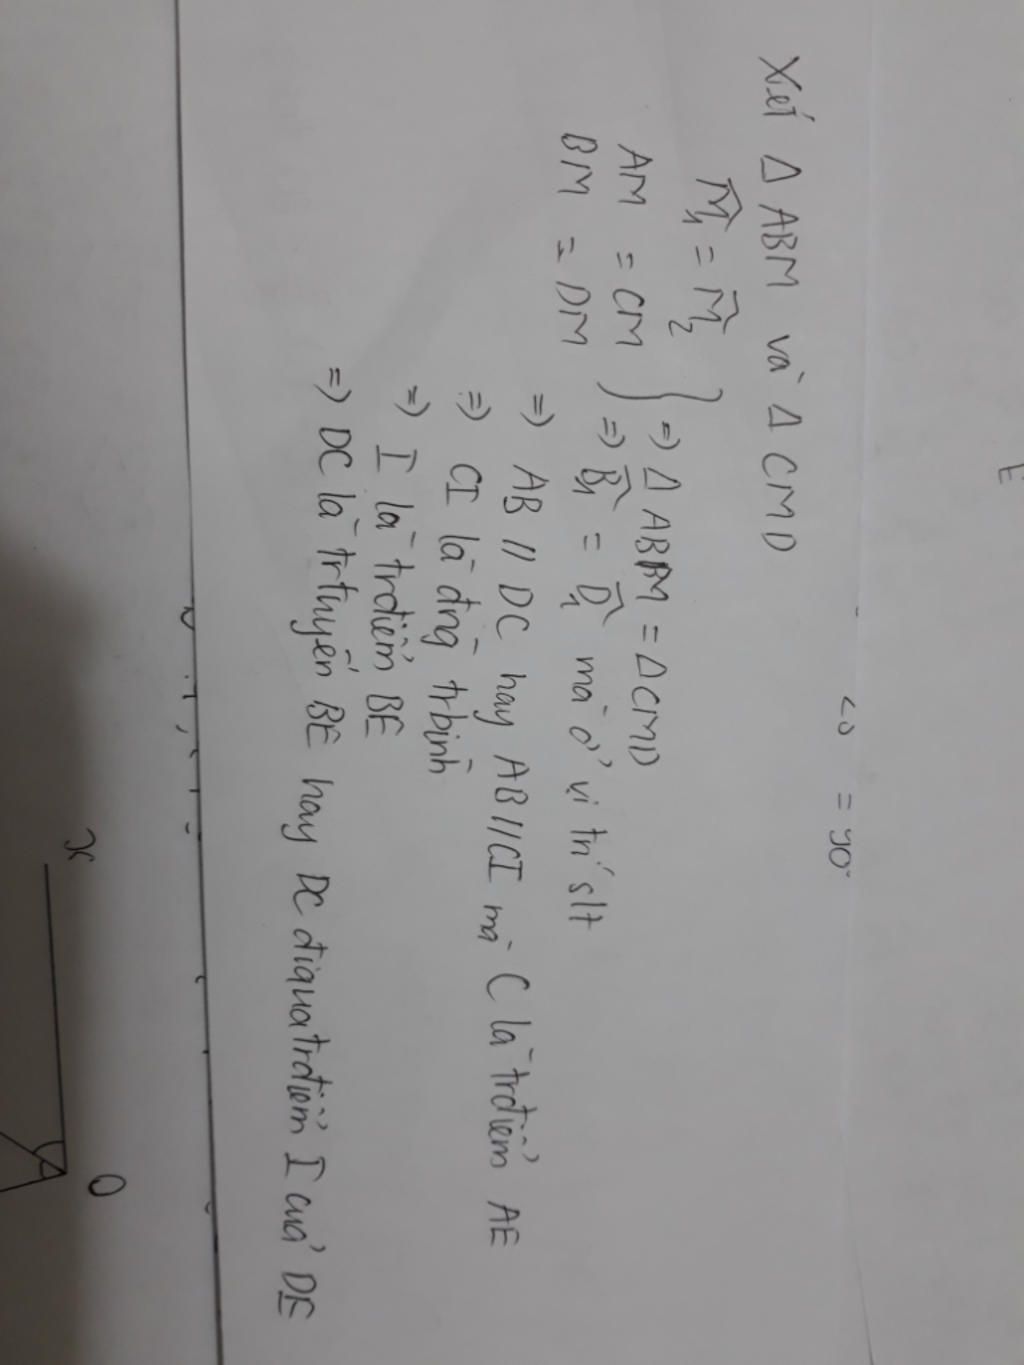 E
= 90°
Xét Δ ABM và Δ CMD
M̂₁ = M̂₂
AM = CM } ⇒ Δ ABM = Δ CMD
BM = DM ⇒ B̂₁ = D̂₁ mà ở vị trí slt
⇒ AB // DC hay AB // CI mà C là trđiểm AE
⇒ CI là đng trbình
⇒ I là trđiểm BE
⇒ DC là trthyến BE hay DC điqua trđiểm I của DE
x
O